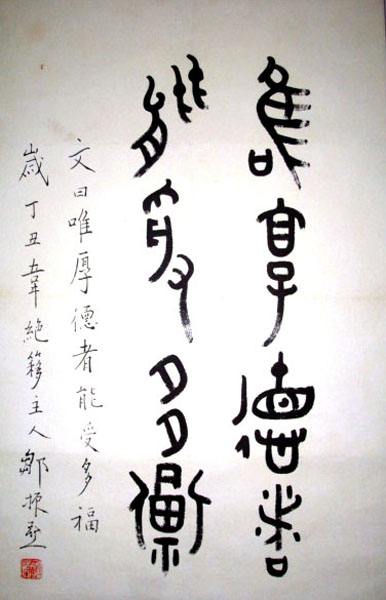 唯厚德者
能受多福
文曰唯厚德者能受多福
歲丁丑韋絕簃主人鄒振亞